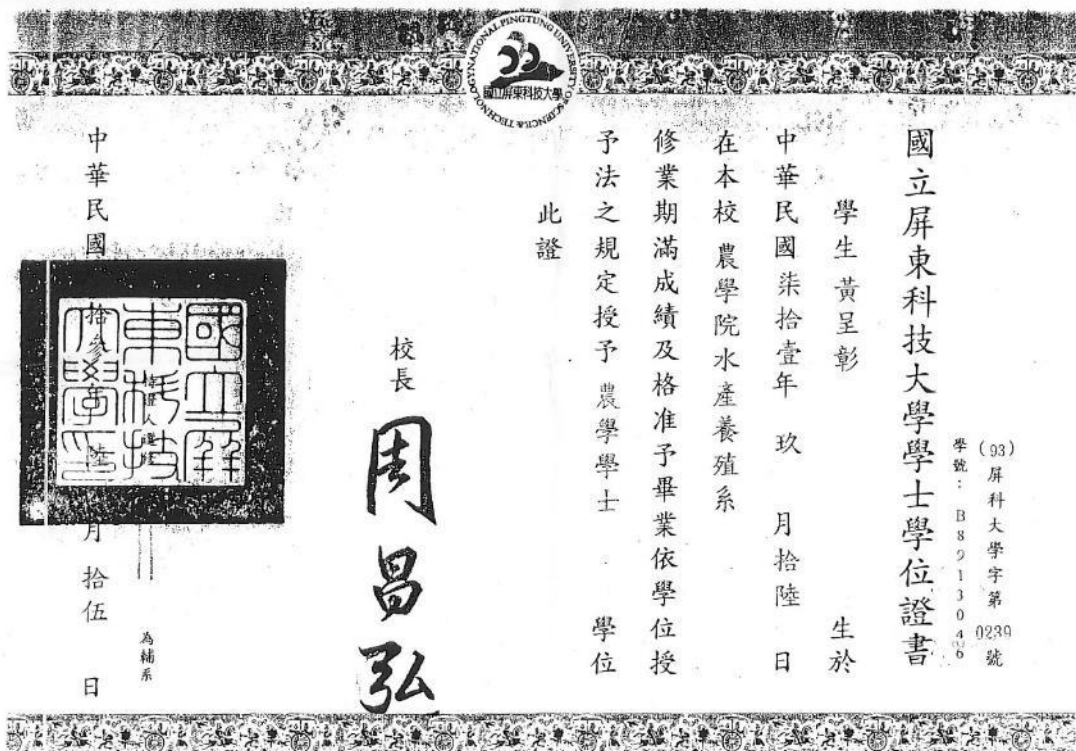 NATIONAL PINGTUNG UNIVERSITY OF SCIENCE & TECHNOLOGY
國立屏東科技大學
(93)屏科大學字第0239號
學號：B8913046
國立屏東科技大學學士學位證書
學生 黃呈彰 生於
中華民國柒拾壹年 玖 月拾陸 日
在本校 農學院水產養殖系
修業期滿成績及格准予畢業依學位授
予法之規定授予 農學學士 學位
此證
校長 周昌弘
國立屏東科技大學印
為輔系
中華民國 拾參年 陸 月 拾伍 日